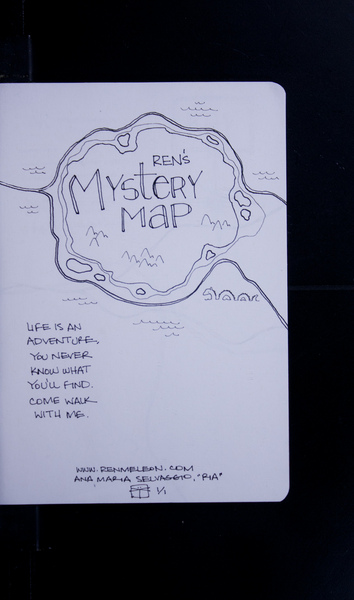 REN'S
MYSTERY
MAP
LIFE IS AN
ADVENTURE,
YOU NEVER
KNOW WHAT
YOU'LL FIND.
COME WALK
WITH ME.
WWW.RENMELEON.COM
ANA MARIA SELVAGGIO, "RIA"
1/1